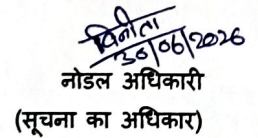 विनीता
30/06/2026
नोडल अधिकारी
(सूचना का अधिकार)